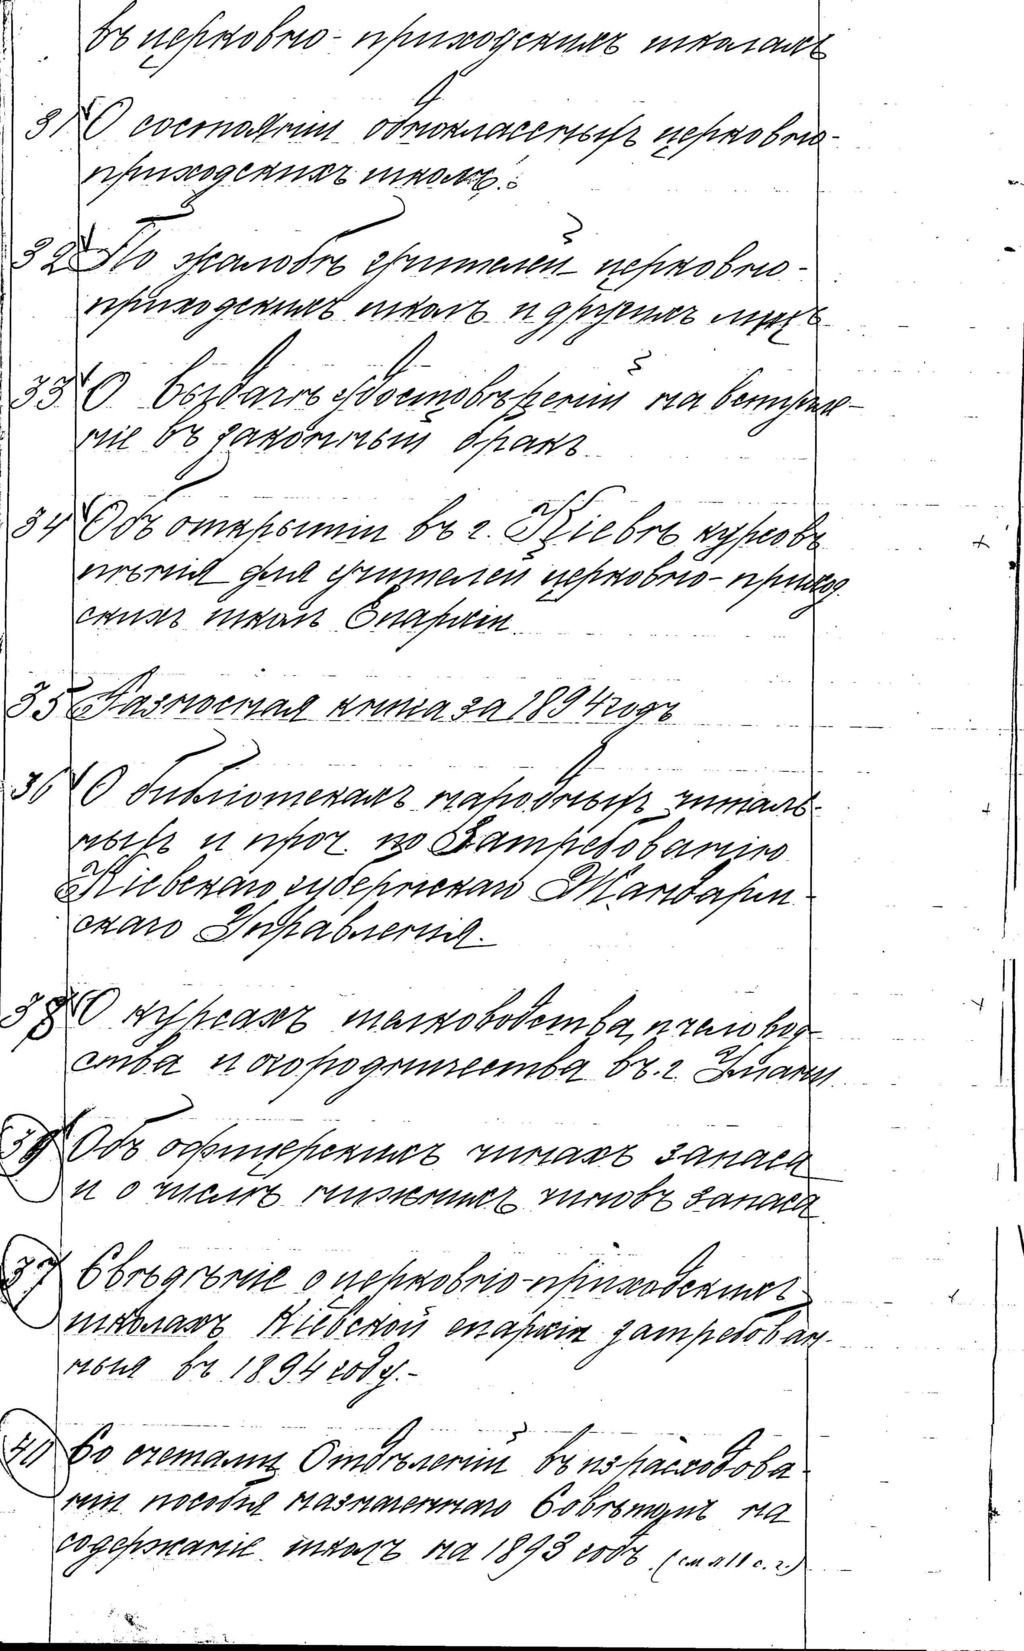 въ церковно-приходскихъ школахъ
31 О состоянiи одноклассныхъ церковно-
приходскихъ школъ.
32 По жалобѣ учителей церковно-
приходскихъ школъ и другихъ лицъ
33 О выдачѣ удостовѣренiй на вступле-
нiе въ законный бракъ.
34 Объ открытiи въ г. Кiевѣ курсовъ
пѣнiя для учителей церковно-приход
скихъ школъ Епархiи.
35 Разносная книга за 1894 годъ
36 О библiотекахъ народныхъ читаль-
ныхъ и проч. по затребованiю
Кiевскаго губернскаго Жандарм-
скаго Управленiя.
38 О курсахъ шелководства, пчеловод-
ства и огородничества въ г. Умани
39 Объ офицерскихъ чинахъ запаса
и о числѣ нижнихъ чиновъ запаса
37 Свѣдѣнiе о церковно-приходскихъ
школахъ Кiевской епархiи затребован-
ныя въ 1894 году.-
40 Со счетами Отдѣленiй въ израсходова-
нiи пособiя назначеннаго Совѣтомъ на
содержанiе школъ на 1893 годъ (см. 11 с. г.)